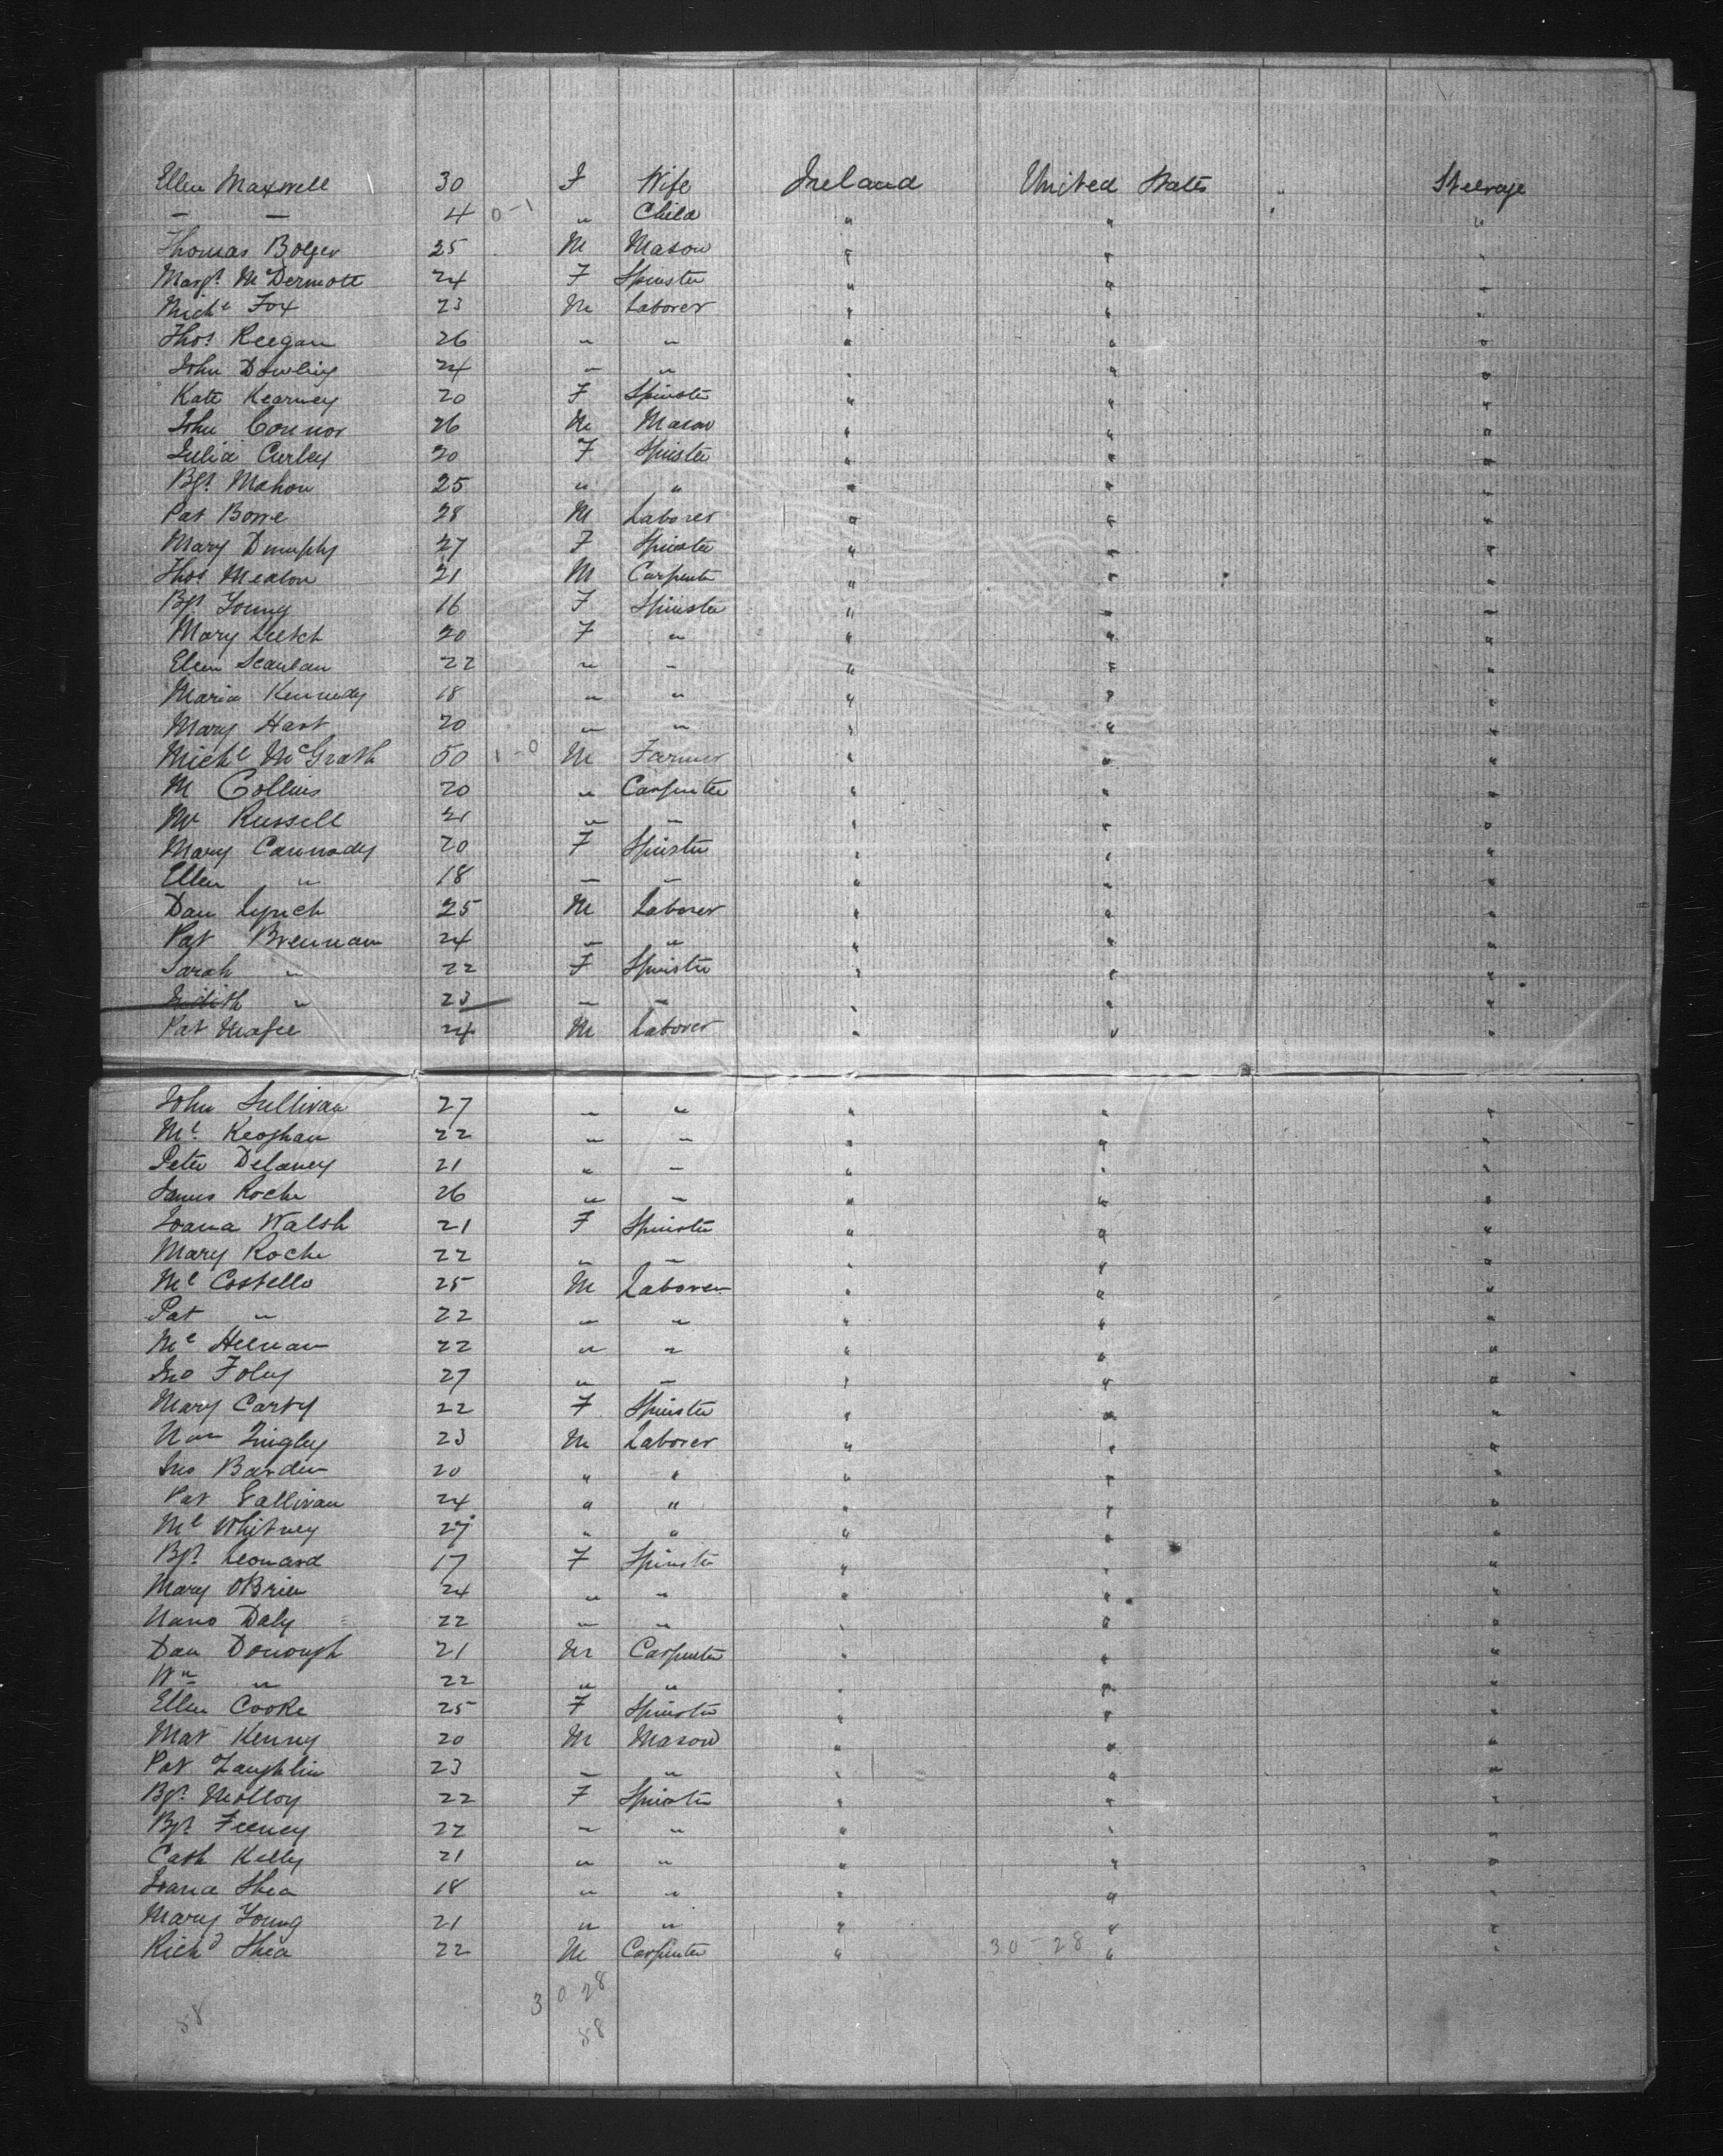 Ellen Maxwell 30 F Wife Ireland United States Steerage
— — 4 0-1 " Child " " "
Thomas Bolger 25 M Mason " " "
Margt McDermott 24 F Spinster " " "
Michl Fox 23 M Laborer " " "
Thos Reegan 26 " " " " "
John Dowling 24 " " " " "
Kate Kearney 20 F Spinster " " "
John Connor 26 M Mason " " "
Julia Curley 20 F Spinster " " "
Bgt Mahon 25 " " " " "
Pat Bowe 28 M Laborer " " "
Mary Dunphy 27 F Spinster " " "
Thos Mealon 21 M Carpenter " " "
Bgt Young 16 F Spinster " " "
Mary 20 F " " " "
Ellen Scanlan 22 " " " " "
Maria Kennedy 18 " " " " "
Mary Hart 20 " " " " "
Michl McGrath 50 1-0 M Farmer " " "
M Collins 20 " Carpenter " " "
M Russell 21 " " " " "
Mary Cannady 20 F Spinster " " "
Ellen " 18 " " " " "
Dan Lynch 25 M Laborer " " "
Pat Brennan 24 " " " " "
Sarah " 22 F Spinster " " "
Judith " 23 " " " " "
Pat Magee 24 M Laborer " " "
John Sullivan 27 " " " " "
Ml Keoghan 22 " " " " "
Peter Delaney 21 " " " " "
James Roche 26 " " " " "
Joana Walsh 21 F Spinster " " "
Mary Roche 22 " " " " "
Ml Costello 25 M Laborer " " "
Pat " 22 " " " " "
Ml Heenan 22 " " " " "
Jno Foley 27 " " " " "
Mary Carty 22 F Spinster " " "
23 M Laborer " " "
Jno Barden 20 " " " " "
Pat Gallivan 24 " " " " "
Ml Whitney 27 " " " " "
Bgt Leonard 17 F Spinster " " "
Mary OBrien 24 " " " " "
Nano Daly 22 " " " " "
Dan Donough 21 M Carpenter " " "
Wm " 22 " " " " "
Ellen Cooke 25 F Spinster " " "
Mat Kenny 20 M Mason " " "
Pat Laughlin 23 " " " " "
Bgt Molloy 22 F Spinster " " "
Bgt Feeney 22 " " " " "
Cath Kelly 21 " " " " "
Joana Shea 18 " " " " "
Mary Young 21 " " " " "
Richd Shea 22 M Carpenter " 30-28 " "
30 28
58 58